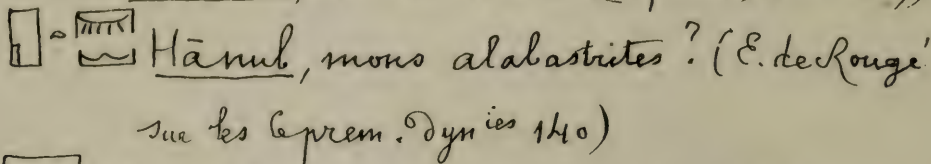 Hānub, mons alabastrites? (E. de Rougé
sur les 6 prem. Dyn ies 140)